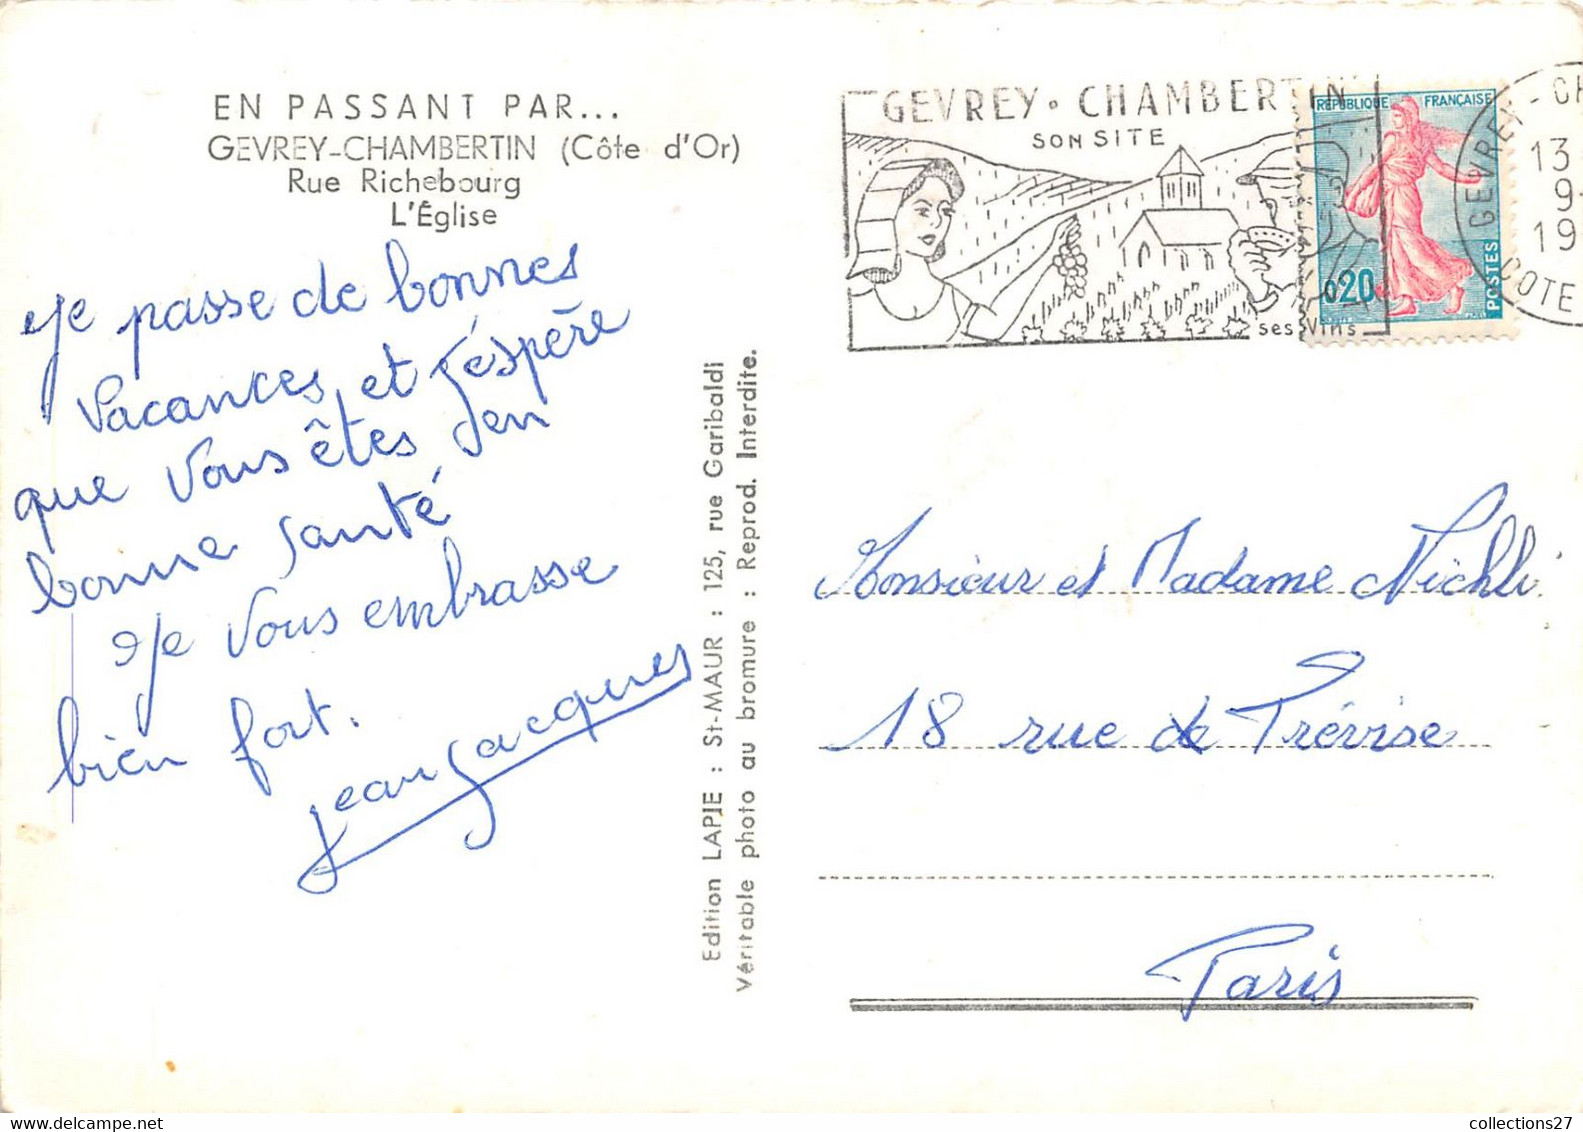 EN PASSANT PAR...
GEVREY-CHAMBERTIN (Côte d'Or)
Rue Richebourg
L'Église
Je passe de bonnes
vacances, et j'éspère
que vous êtes en
bonne santé
Je vous embrasse
bien fort.
Jean Jacques
Edition LAPIE : St-MAUR : 125, rue Garibaldi
Véritable photo au bromure : Reprod. Interdite.
GEVREY • CHAMBERTIN
SON SITE
ses vins
RÉPUBLIQUE FRANÇAISE
0,20
POSTES
GEVREY - CH
13
9-
19
COTE
Monsieur et Madame
18 rue de Trévise
Paris
collections27